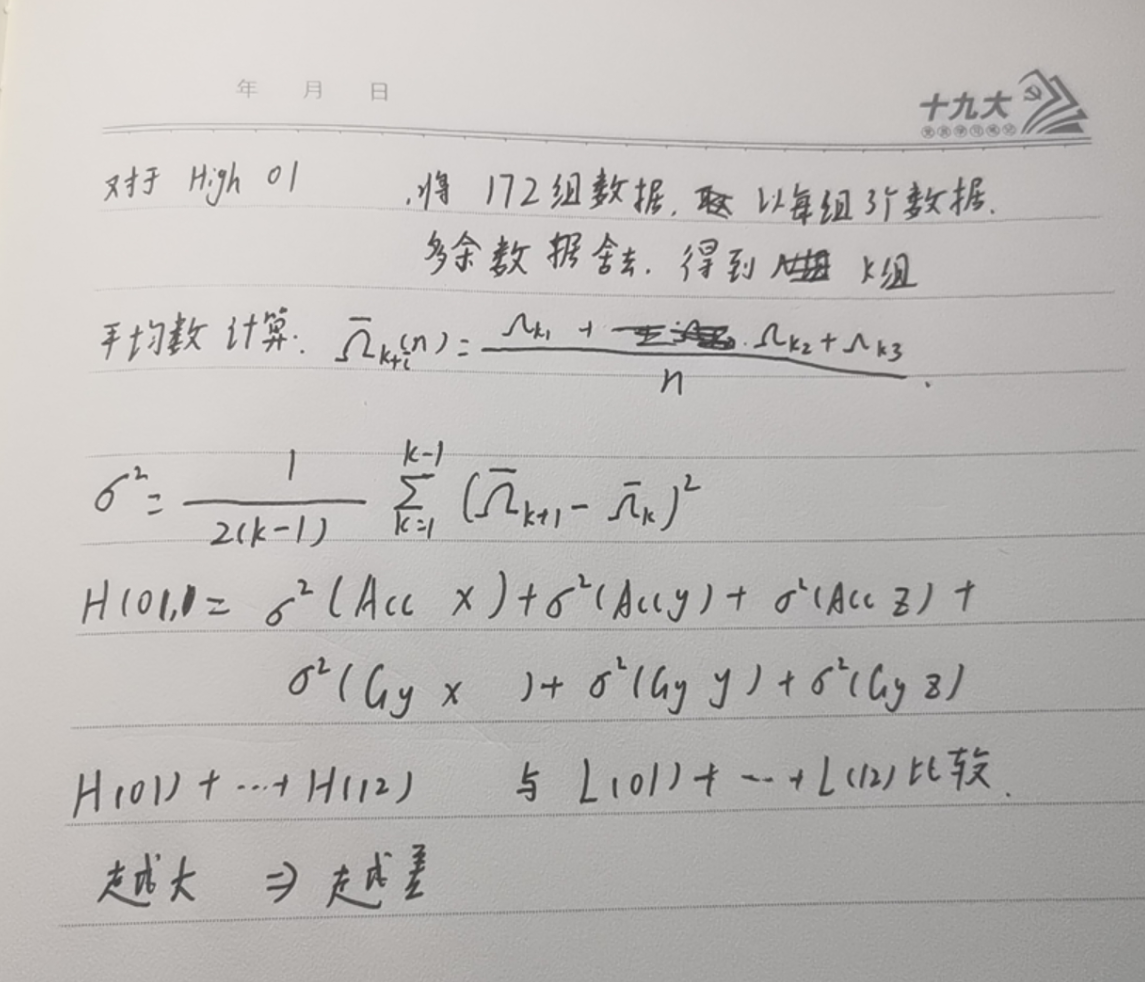 年 月 日
十九大
对于 High 01 , 将 172组数据, 以每组3个数据.
多余数据舍去. 得到 K组
平均数 计算: Ω̄ₖ₊ᵢ(n) = (Ωk₁ + Ωk₂ + Ωk₃) / n .
σ² = 1 / 2(k-1) Σ_{k=1}^{k-1} (Ω̄ₖ₊₁ - Ω̄ₖ)²
H(01) = σ²(Acc x) + σ²(Acc y) + σ²(Acc z) +
σ²(Gy x ) + σ²(Gy y) + σ²(Gy z)
H(01) + ... + H(12) 与 L(01) + ... + L(12) 比较.
越大 ⇒ 越差